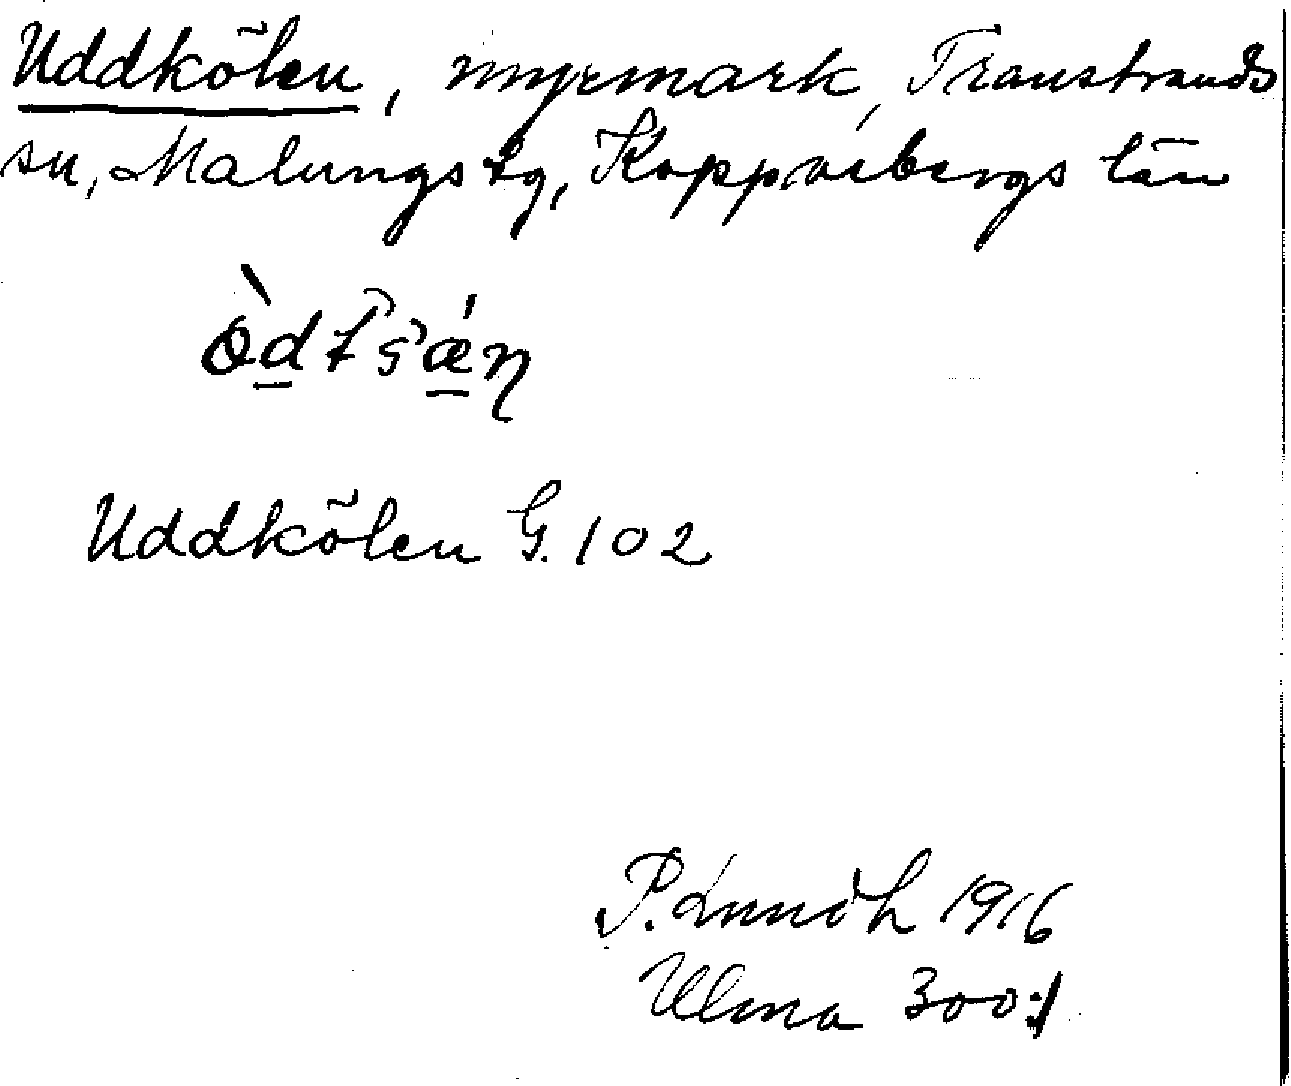 Uddkölen, myrmark, Transtrands
sn, Malungs tg, Kopparbergs län
Uddkölen G. 102
P. Lundh 1916
Ulma 300:1